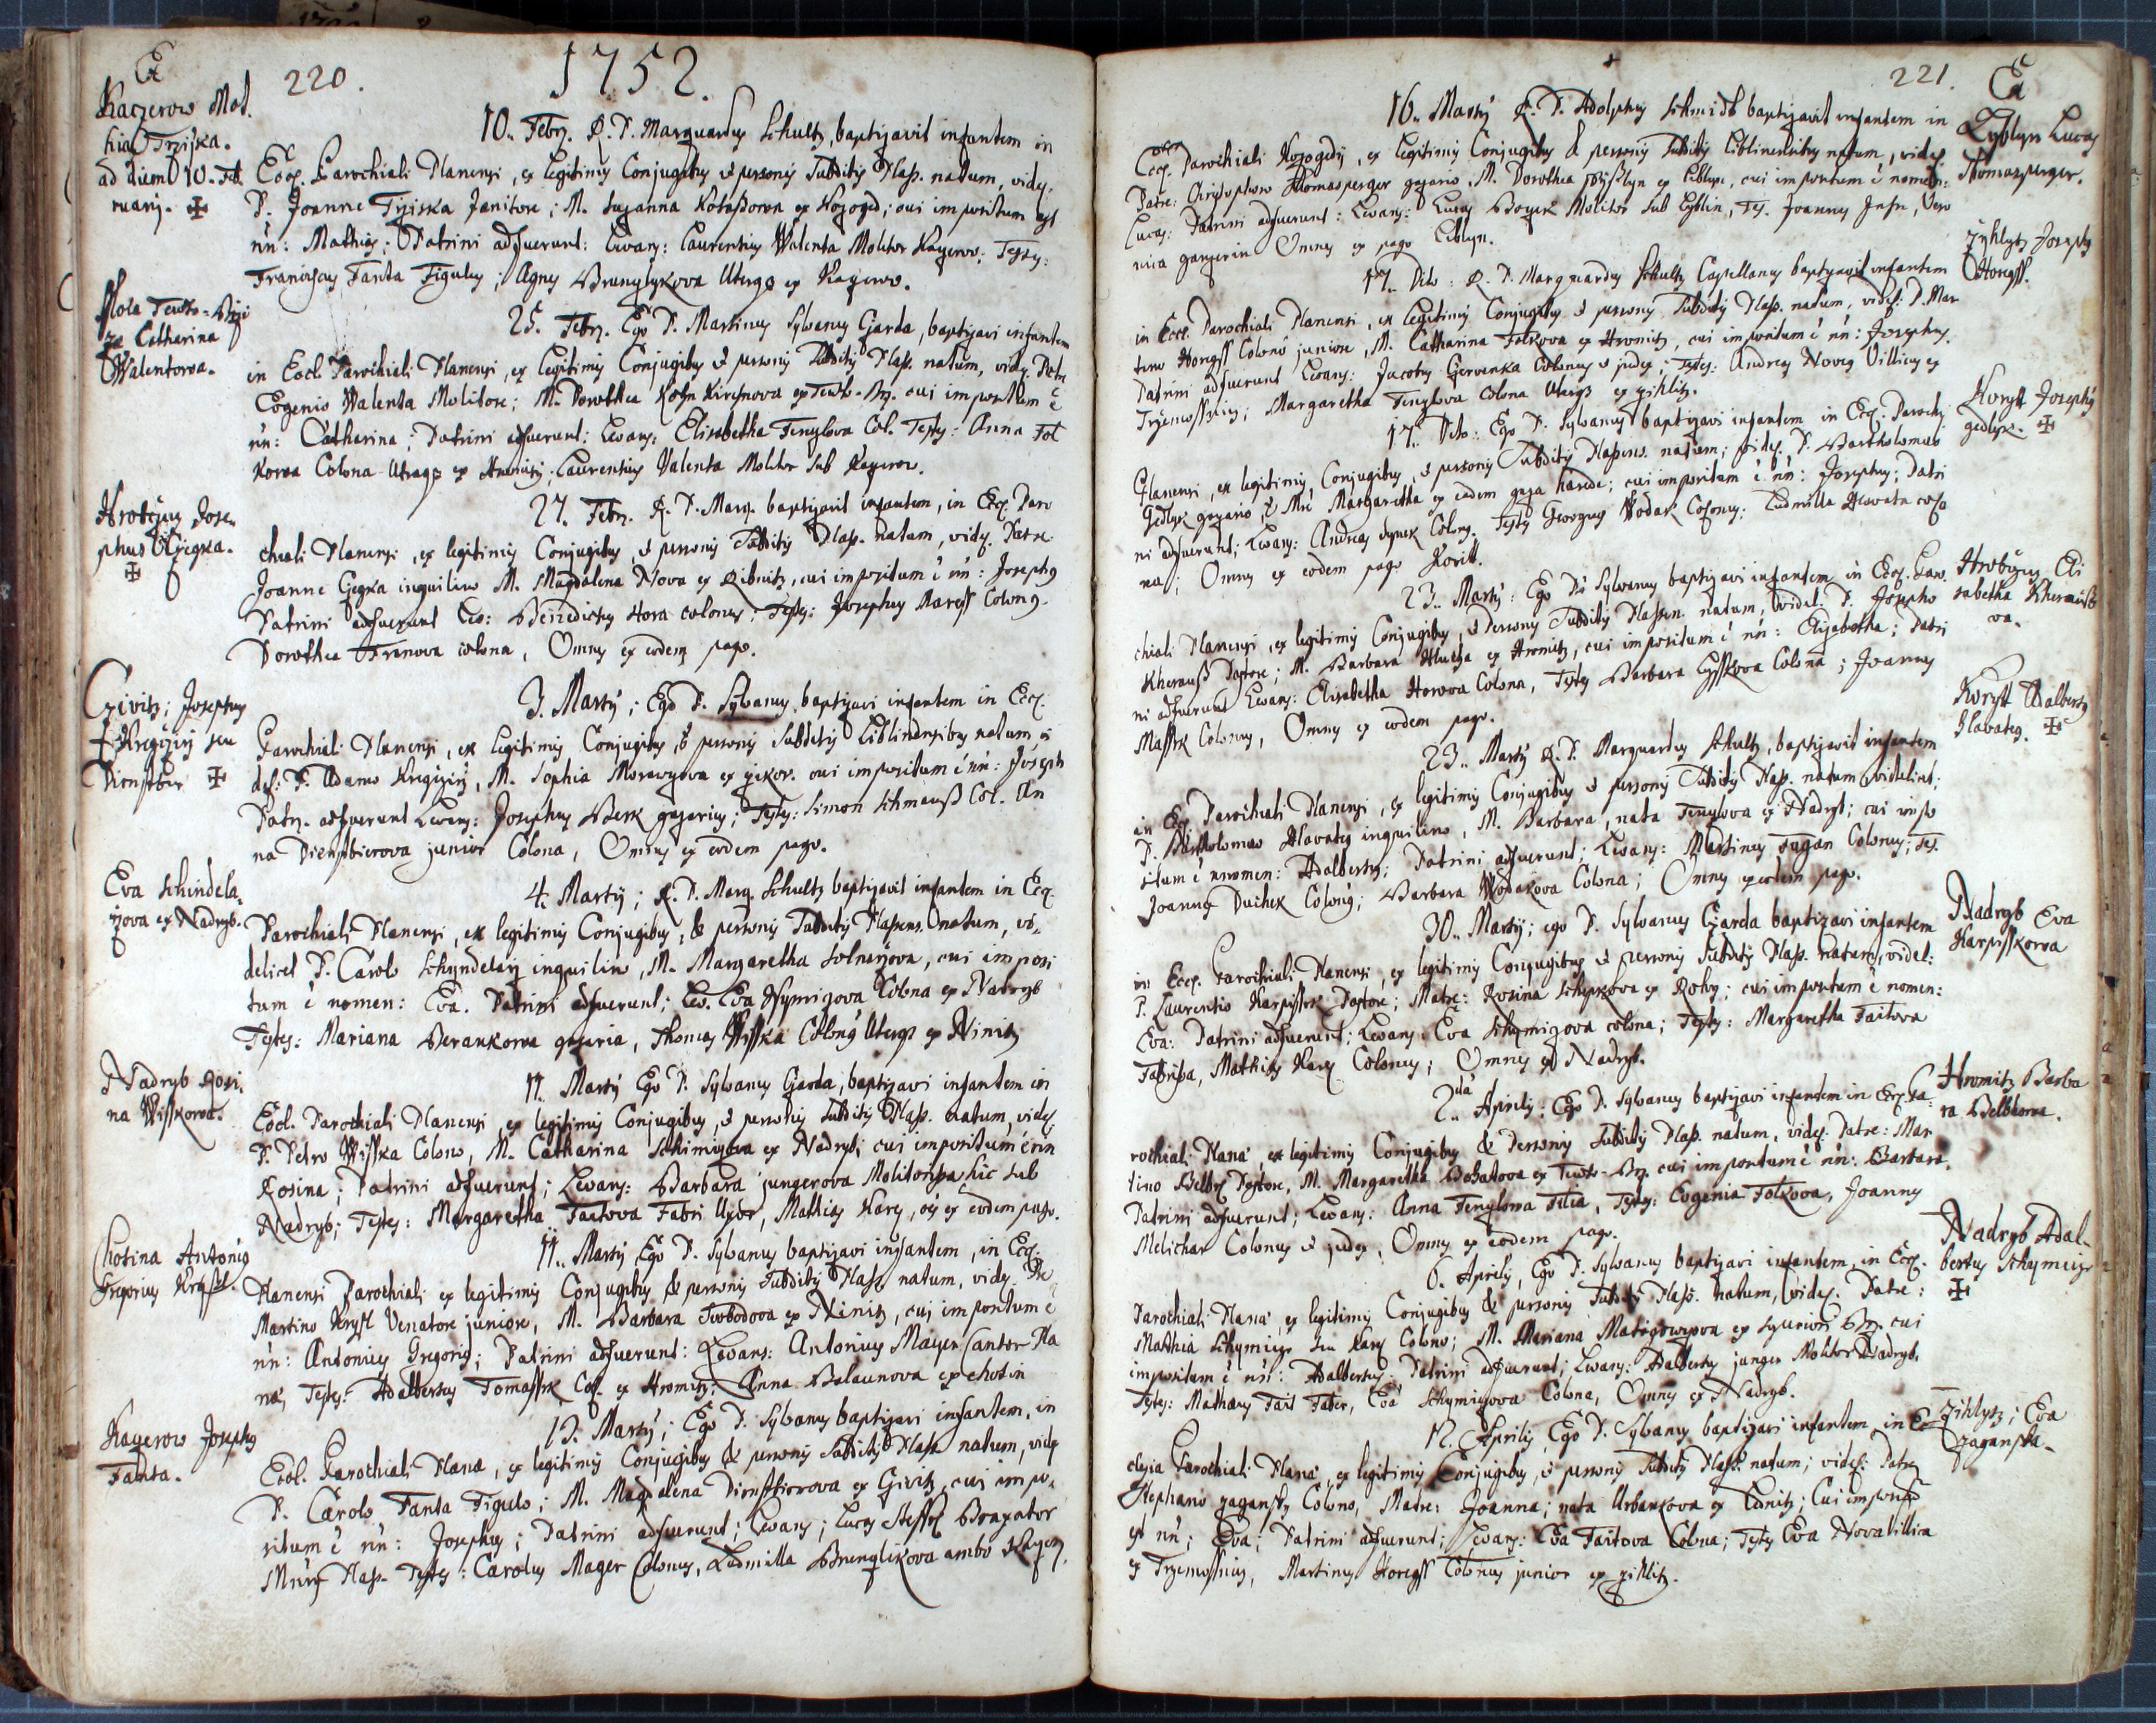 Ex
220.
1752.
Kaczerow Mat.
hias Trziska.
ad diem 10. Feb.
ruarij. ✠
10. Febr. R. P. Marquardus Schultz, baptizavit infantem in
Eccl. Parochiali Planensi, ex legitimis Conjugibus & personis Subditis Plass. natum, videl.
P. Joanne Trziska Janitore; M. Suzanna ex Kozoged; cui impositum est
nn: Mathias; Patrini adfuerunt: Levans: Laurentius Walenta Molitor Kaczerow; Testes:
Franciscus Fanta Figulus; Agnes Brunzlykova Uterqs ex Kaczerow.
Catharina
Walentowa.
25. Febr. Ego P. Martinus Sylvanus Gjarda, baptizavi infantem
in Eccl. Parochiali Planensi, ex legitimis Conjugibus & personis Subditis Plass. natum, videl. Patre
Eogenio Walenta Molitore; M. Dorothea cui impositum ē
nn: Catharina; Patrini adfuerunt; Levans: Elisabetha Fenylova Col. Testes: Anna Fol
kowa Colona Utraqs ex Hromitz; Laurentius Valenta Molitor sub Kacerow.
Hrobczicz Jose,
phus Gegka.
✠
27. Febr. R. P. Marq. baptizavit infantem, in Eccl. Paro
chiali Planensi, ex legitimis Conjugibus, & personis Subditis Plass. natum, videl. Patre
Joanne Gegka inquilino M. Magdalena Nova ex Ribnitz, cui impositum ē nn: Josephus
Patrini adfuerunt Lev: Benedictus Hora colonus; Testes: Josephus Maress Colonus
Dorothea Franova colona, Omnes ex eodem pago.
Czivitz; Josephus
Kregczirz seu
Dienstbir ✠
3. Martij; Ego P. Sylvanus baptizavi infantem in Eccl.
Parochiali Planensi, ex legitimis Conjugibus, & personis Subditis Liblinensibus natum vi
del: P. Adamo Kregczirz, M. Sophia Morawzowa ex cui impositum ē nn: Joseph
Patr. adfuerunt Levans: Josephus Berk gazarius; Testes: Simon Schmauß Col. An
na Dienstbierova junior Colona, Omnes ex eodem pago.
Eva Schindela,
rzova ex Nadryb.
4. Martij; R. P. Marq. Schultz baptizavit infantem in Eccl.
Parochiali Planensi, ex legitimis Conjugibus, & personis Subditis Plassens. natum, vi,
delicet P. Carolo Schyndelarz inquilino, M. Margaretha Solnarzova, cui imposi
tum ē nomen: Eva. Patrini adfuerunt; Lev. Eva Colona ex Nadryb
Testes: Mariana Berankowa gazaria, Thomas Wisska Colonus Uterqs ex Ninitz
Nadryb Rosi,
na Wisskowa.
11. Martij Ego P. Sylvanus Gjarda, baptizavi infantem in
Eccl. Parochiali Planensi, ex legitimis Conjugibus, & personis Subditis Plass. natum, videl.
P. Petro Wisska Colono, M. Catharina Schimigowa ex Nadryb; cui impositum ē nn
Rosina; Patrini adfuerunt; Levans: Barbara jungerova Molitorissa hic sub
Nadryb; Testes: Margaretha Taitova Fabri Uxor, Mathias Kares, ex eodem pago.
Chotina Antonius
Gregorius Krysstl.
11. Martij Ego P. Sylvanus baptizavi infantem, in Eccl.
Planensi Parochiali ex legitimis Conjugibus & personis Subditis Plass. natum, videl. Pre
Martino Krystl Venatore juniore, M. Barbara Swobodova ex Ninitz, cui impositum ē
nn: Antonius Gregorius; Patrini adfuerunt: Levans: Antonius Mayer Cantor Pla
nae, Testes: Adalbertus Tomassek Col. ex Hromitz; Anna Balaunova ex chotin
Kacerow Josephus
Fanta.
15. Martij; Ego P. Sylvanus baptizavi infantem, in
Eccl. Parochiali Plana, ex legitimis Conjugibus & personis Subditis Plass. natum, videl.
P. Carolo Fanta Figulo; M. Magdalena Dienstbierova ex Czivitz, cui impo,
situm ē nn: Josephus; Patrini adfuerunt; Levans; Lucas Steffl Braxator
Plass. Testes: Carolus Mager Colonus, Ludmilla Brunzlikova ambo Kacer.
221.
Ex
Lyblyn Lucas
Thomasperger.
16. Martij R. P. Adolphus Schmidt baptizavit infantem in
Eccl. Parochiali Kozogedij, ex legitimis Conjugibus & personis Subditis Liblinensibus natum, videl.
Patre: Christophoro Thomasperger gazario, M. Dorothea ex Liblyn, cui impositum ē nomen:
Lucas: Patrini adfuerunt: Levans: Lucas Molitor sub Lyblin, Tes. Joannes Vero
nica Omnes ex pago Liblyn.
Zihlytz Josephus
Horegss.
17. Dito: R. P. Marquardus Schultz Capellanus baptizavit infantem
in Eccl. Parochiali Planensi, ex legitimis Conjugibus & personis Subditis Plass. natum, videl: P. Mar
tino Horegss Colono juniore, M. Catharina Folkova ex Hromitz, cui impositum ē nn: Josephus.
Patrini adfuerunt Levans: Jacobus Gervenka Colonus & judex; Testes: Andreas Noveg Villicus ex
Trzemossnitz; Margaretha Fenylova Colona Uterqs ex zihlitz.
Korytt Josephus
gedlyk. ✠
17. Dito: Ego P. Sylvanus baptizavi infantem in Eccl. Parochi.
Planensi, ex legitimis Conjugibus, & personis Subditis Plassens. natum; videl. P. Bartholomeo
Gedlyk gazario, & Mre Margaretha ex eadem gaza haerede; cui impositum ē nn: Josephus; Patri
ni adfuerunt; Levans: Andreas dynek Colonus. Testes Georgius Wodak Colonus: Ludmilla colo
na; Omnes ex eodem pago Koritt.
Hrobczicz Eli
sabetha Kherausso
va.
23. Martij: Ego P. Sylvanus baptizavi infantem in Eccl. Paro.
chiali Planensi, ex legitimis Conjugibus, & Personis Subditis Plassen. natum, videl. P. Josepho
Kherauß Pastore; M. Barbara Hlucha ex Hromitz, cui impositum ē nn: Elizabetha; Patri
ni adfuerunt Levans: Elisabetha Horova Colona, Testes Barbara Lysskova Colona; Joannes
Massek Colonus, Omnes ex eodem pago.
Korytt Adalbertus
Hlavateg. ✠
23. Martij R. P. Marquardus Schultz, baptizavit infantem
in Eccl. Parochiali Planensi, ex legitimis Conjugibus & personis Subditis Plass. natum videlicet;
P. Bartholomeo Hlavateg inquilino, M. Barbara, nata Fenylova ex Nadryb; cui impo
situm ē nomen: Adalbertus; Patrini adfuerunt; Levans: Martinus Dugan Colonus; Tes.
Joannes Duchek Colonus; Barbara Wodakova Colona; Omnes ex eodem pago.
Nadryb Eva
Karpisskowa
30. Martij; ego P. Sylvanus Gjarda baptizavi infantem
in Eccl. Parochiali Planensi, ex legitimis Conjugibus & personis Subditis Plass. natum, videl:
P. Laurentio Karpissek Pastore; Matre: Rosina ex Rohy; cui impositum ē nomen:
Eva: Patrini adfuerunt; Levans: Eva Schymigova colona; Testes: Margaretha Taitova
Fabrissa, Mathias Karez Colonus; Omnes ex Nadryb.
Hromitz Barba
ra Belblowa.
2da Aprilis: Ego P. Sylvanus baptizavi infantem in Eccl. Pa
rochiali Plana, ex legitimis Conjugibus & Personis Subditis Plass. natum, videl. Patre: Mar
tino Pastore, M. Margaretha cui impositum ē nn: Barbara.
Patrini adfuerunt; Levans: Anna Fenylowa Filia, Testes: Eogenia Folkova, Joannes
Melichar Colonus & judex, Omnes ex eodem pago.
Nadryb Adal-
bertus Schymiczr
✠
6. Aprilis, Ego P. Sylvanus baptizavi infantem, in Eccl.
Parochiali Plana, ex legitimis Conjugibus & personis Subditis Plass. natum, videl. Patre:
Mathia Schymiczr seu Karez Colono; M. Mariana ex cui
impositum ē nn: Adalbertus: Patrini adfuerunt; Levans: Adalbertus junger Molitor Nadryb.
Testes: Mathaeus Tait Faber, Eva Schymigova Colona, Omnes ex Nadryb.
Zihlytz; Eva
zaganska.
12. Aprilis Ego P. Sylvanus baptizavi infantem in Ec-
clesia Parochiali Plana, ex legitimis Conjugibus, & personis Subditis Plass. natum; videl: Patre
Stephano zagansky Colono, Matre: Joanna; nata Urbankova ex Lednitz; Cui impositum
est nn; Eva; Patrini adfuerunt; Levans: Eva Taitova Colona; Testes Eva Nova Villica
ex Trzemossnitz, Martinus Horegss Colonus junior ex zihlitz.